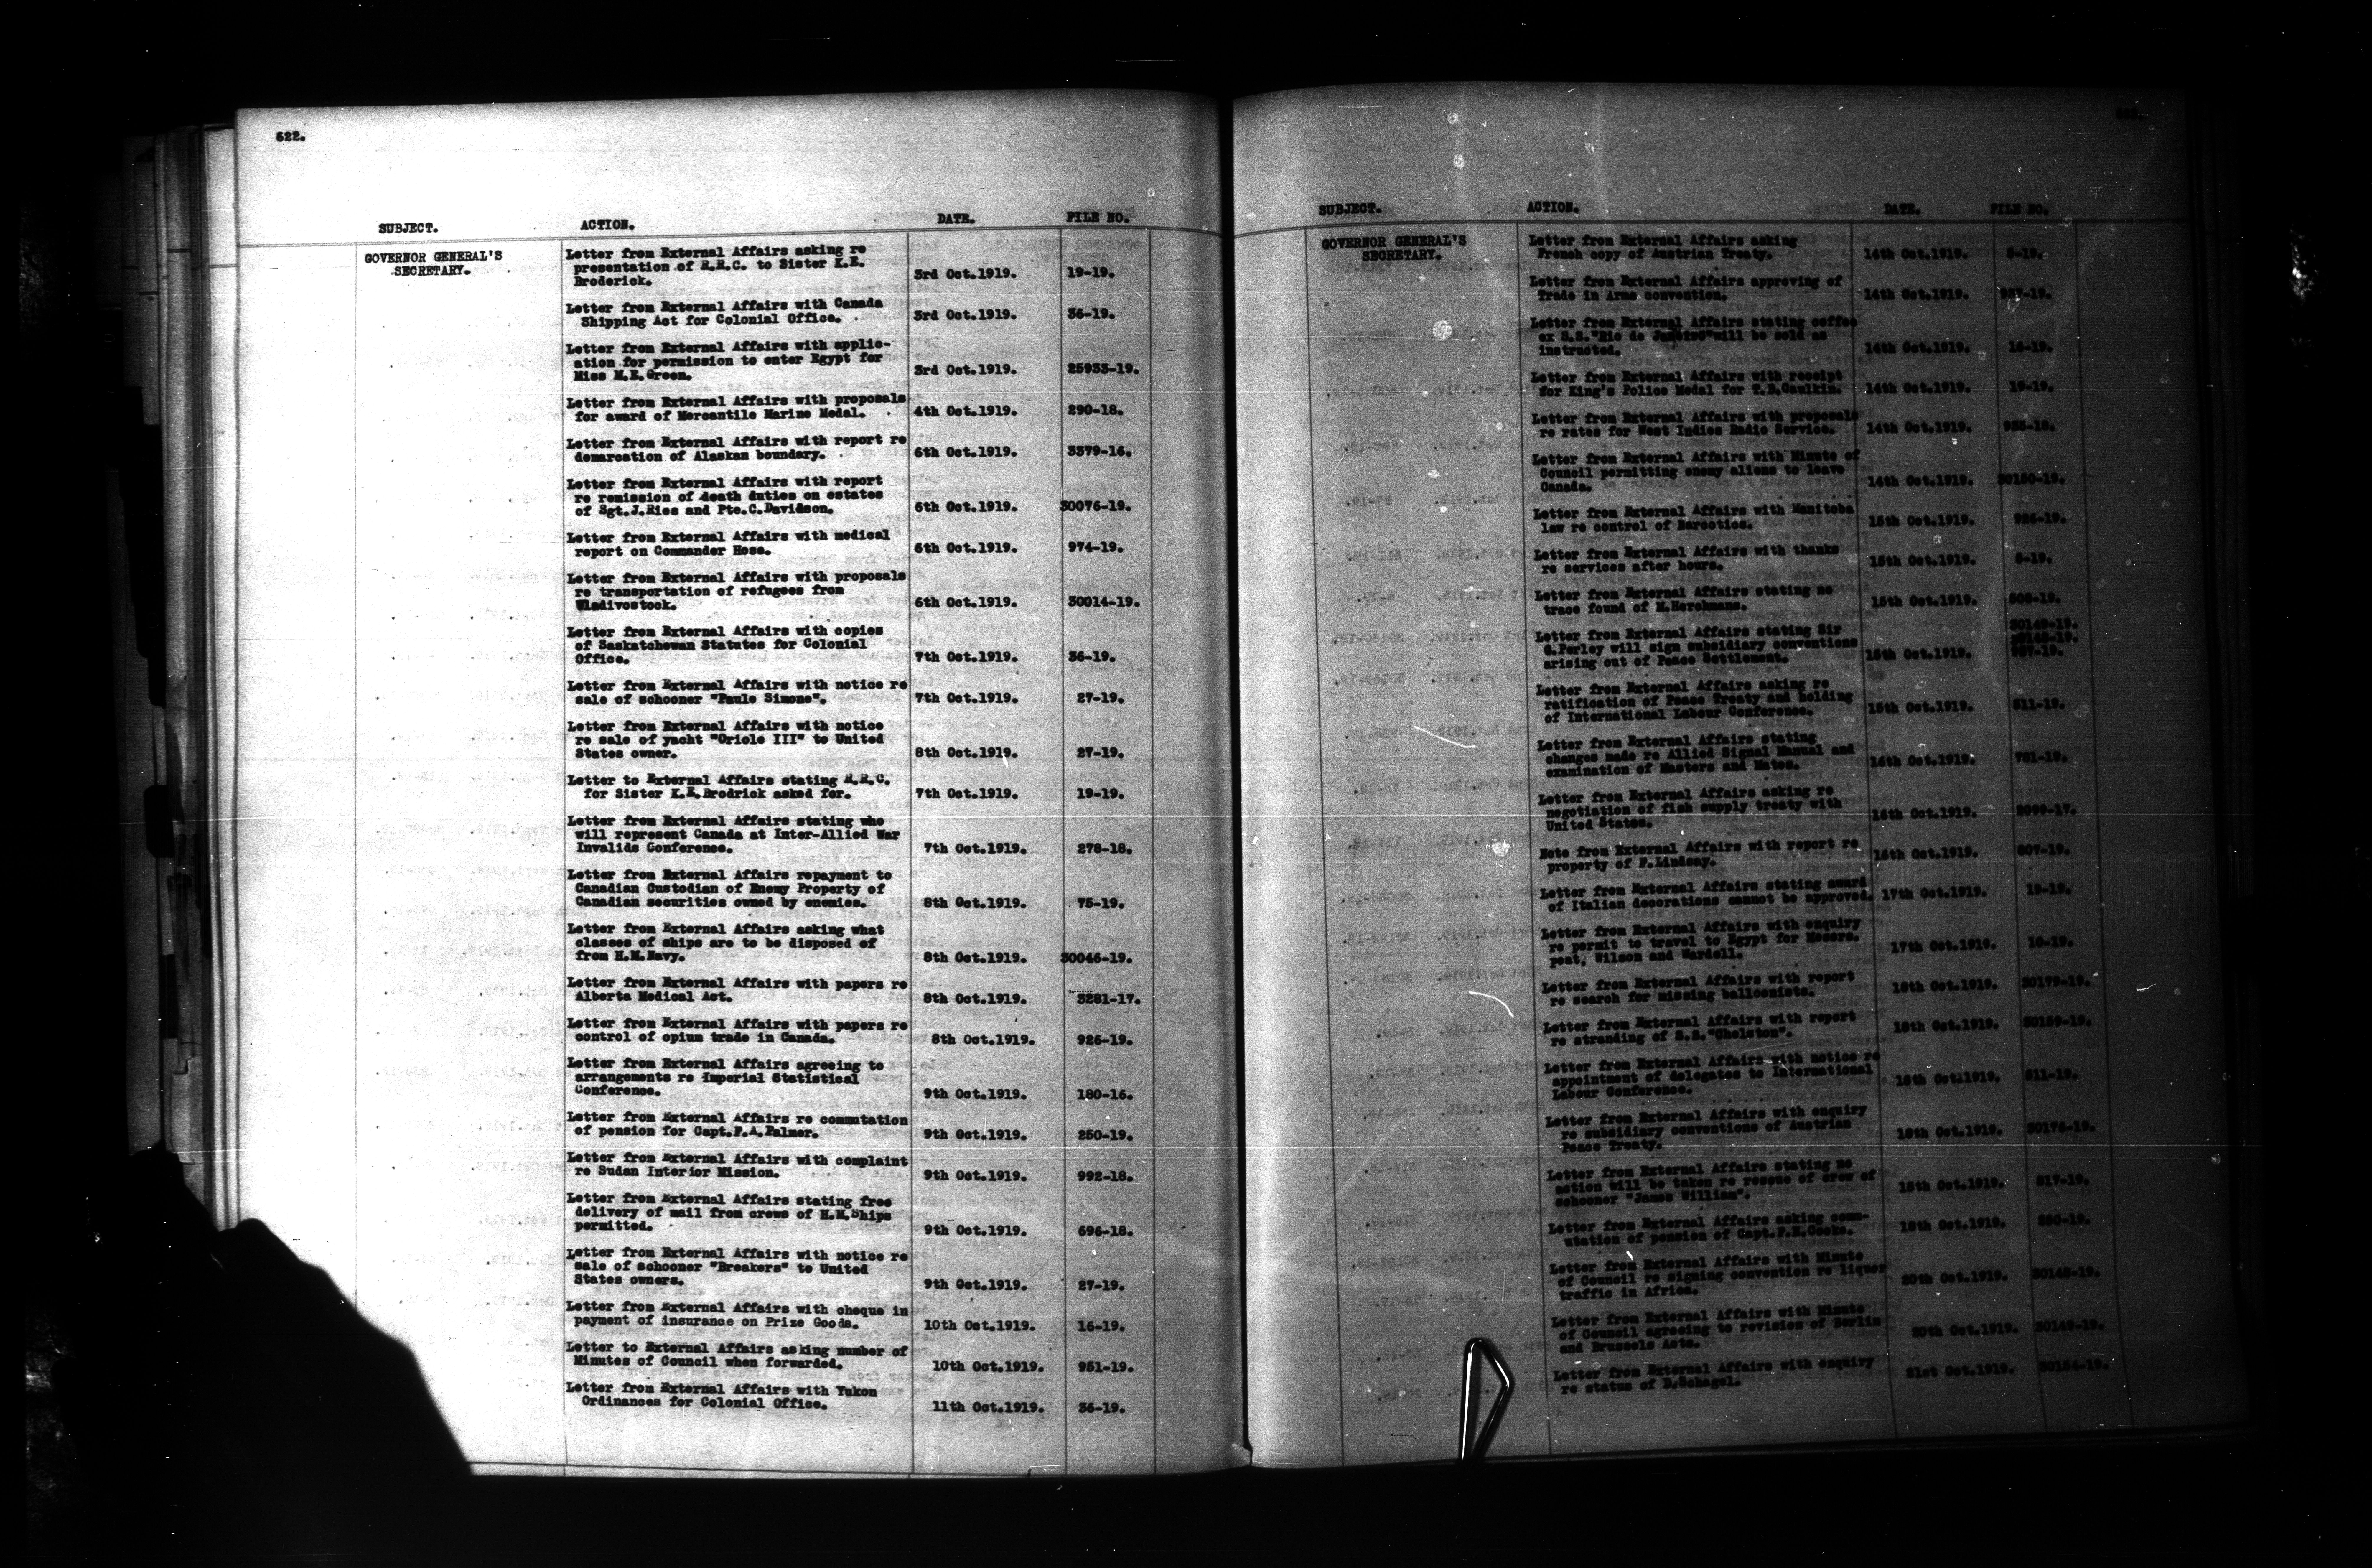 622.
SUBJECT. ACTION. DATE. FILE NO.
GOVERNOR GENERAL'S
SECRETARY.
Letter from External Affairs asking re
presentation of R.R.C. to Sister K.E.
Broderick. 3rd Oct.1919. 19-19.
Letter from External Affairs with Canada
Shipping Act for Colonial Office. 3rd Oct.1919. 36-19.
Letter from External Affairs with applic-
ation for permission to enter Egypt for
Miss M.E.Green. 3rd Oct.1919. 25933-19.
Letter from External Affairs with proposals
for award of Mercantile Marine Medal. 4th Oct.1919. 290-18.
Letter from External Affairs with report re
demarcation of Alaskan boundary. 6th Oct.1919. 3379-16.
Letter from External Affairs with report
re remission of death duties on estates
of Sgt.J.Ries and Pte.C.Davidson. 6th Oct.1919. 30076-19.
Letter from External Affairs with medical
report on Commander Hose. 6th Oct.1919. 974-19.
Letter from External Affairs with proposals
re transportation of refugees from
Vladivostock. 6th Oct.1919. 30014-19.
Letter from External Affairs with copies
of Saskatchewan Statutes for Colonial
Office. 7th Oct.1919. 36-19.
Letter from External Affairs with notice re
sale of schooner "Paule Simone". 7th Oct.1919. 27-19.
Letter from External Affairs with notice
re sale of yacht "Oriole III" to United
States owner. 8th Oct.1919. 27-19.
Letter to External Affairs stating R.R.C.
for Sister K.E.Brodrick asked for. 7th Oct.1919. 19-19.
Letter from External Affairs stating who
will represent Canada at Inter-Allied War
Invalids Conference. 7th Oct.1919. 278-18.
Letter from External Affairs repayment to
Canadian Custodian of Enemy Property of
Canadian securities owned by enemies. 8th Oct.1919. 75-19.
Letter from External Affairs asking what
classes of ships are to be disposed of
from H.M.Navy. 8th Oct.1919. 30046-19.
Letter from External Affairs with papers re
Alberta Medical Act. 8th Oct.1919. 3281-17.
Letter from External Affairs with papers re
control of opium trade in Canada. 8th Oct.1919. 926-19.
Letter from External Affairs agreeing to
arrangements re Imperial Statistical
Conference. 9th Oct.1919. 180-16.
Letter from External Affairs re commutation
of pension for Capt.F.A.Palmer. 9th Oct.1919. 250-19.
Letter from External Affairs with complaint
re Sudan Interior Mission. 9th Oct.1919. 992-18.
Letter from External Affairs stating free
delivery of mail from crews of H.M.Ships
permitted. 9th Oct.1919. 696-18.
Letter from External Affairs with notice re
sale of schooner "Breakers" to United
States owners. 9th Oct.1919. 27-19.
Letter from External Affairs with cheque in
payment of insurance on Prize Goods. 10th Oct.1919. 16-19.
Letter to External Affairs asking number of
Minutes of Council when forwarded. 10th Oct.1919. 951-19.
Letter from External Affairs with Yukon
Ordinances for Colonial Office. 11th Oct.1919. 36-19.
SUBJECT. ACTION. DATE. FILE NO.
GOVERNOR GENERAL'S
SECRETARY.
Letter from External Affairs asking
French copy of Austrian Treaty. 14th Oct.1919. 5-19.
Letter from External Affairs approving of
Trade in Arms convention. 14th Oct.1919. 957-19.
Letter from External Affairs stating coffee
ex S.S."Rio de Janeiro" will be sold as
instructed. 14th Oct.1919. 16-19.
Letter from External Affairs with receipt
for King's Police Medal for T.B.Caulkin. 14th Oct.1919. 19-19.
Letter from External Affairs with proposals
re rates for West Indies Radio Service. 14th Oct.1919.
Letter from External Affairs with Minute of
Council permitting enemy aliens to leave
Canada. 14th Oct.1919. 30150-19.
Letter from External Affairs with Manitoba
law re control of Narcotics. 15th Oct.1919. 926-19.
Letter from External Affairs with thanks
re services after hours. 15th Oct.1919. 5-19.
Letter from External Affairs stating no
trace found of M.Herchmans. 15th Oct.1919.
Letter from External Affairs stating Sir
G.Perley will sign subsidiary conventions
arising out of Peace Settlement. 15th Oct.1919. 30149-19.
30148-19.
957-19.
Letter from External Affairs asking re
ratification of Peace Treaty and holding
of International Labour Conference. 15th Oct.1919. 511-19.
Letter from External Affairs stating
changes made re Allied Signal Manual and
examination of Masters and Mates. 16th Oct.1919. 751-19.
Letter from External Affairs asking re
negotiation of fish supply treaty with
United States. 16th Oct.1919. 2099-17.
Note from External Affairs with report re
property of F.Lindsay. 16th Oct.1919. 507-19.
Letter from External Affairs stating award
of Italian decorations cannot be approved. 17th Oct.1919. 19-19.
Letter from External Affairs with enquiry
re permit to travel to Egypt for Messrs.
peat, Wilson and Wardell. 17th Oct.1919. 10-19.
Letter from External Affairs with report
re search for missing balloonists. 18th Oct.1919. 30179-19.
Letter from External Affairs with report
re stranding of S.S."Chelston". 18th Oct.1919. 30159-19.
Letter from External Affairs with notice re
appointment of delegates to International
Labour Conference. 18th Oct.1919. 511-19.
Letter from External Affairs with enquiry
re subsidiary conventions of Austrian
Peace Treaty. 18th Oct.1919. 30175-19.
Letter from External Affairs stating no
action will be taken re rescue of crew of
schooner "James William". 18th Oct.1919. 517-19.
Letter from External Affairs asking comm-
utation of pension of Capt.F.E.Cooke. 18th Oct.1919. 250-19.
Letter from External Affairs with Minute
of Council re signing convention re liquor
traffic in Africa. 20th Oct.1919. 30148-19.
Letter from External Affairs with Minute
of Council agreeing to revision of Berlin
and Brussels Acts. 20th Oct.1919. 30149-19.
Letter from External Affairs with enquiry
re status of D.Schagel. 21st Oct.1919. 30154-19.